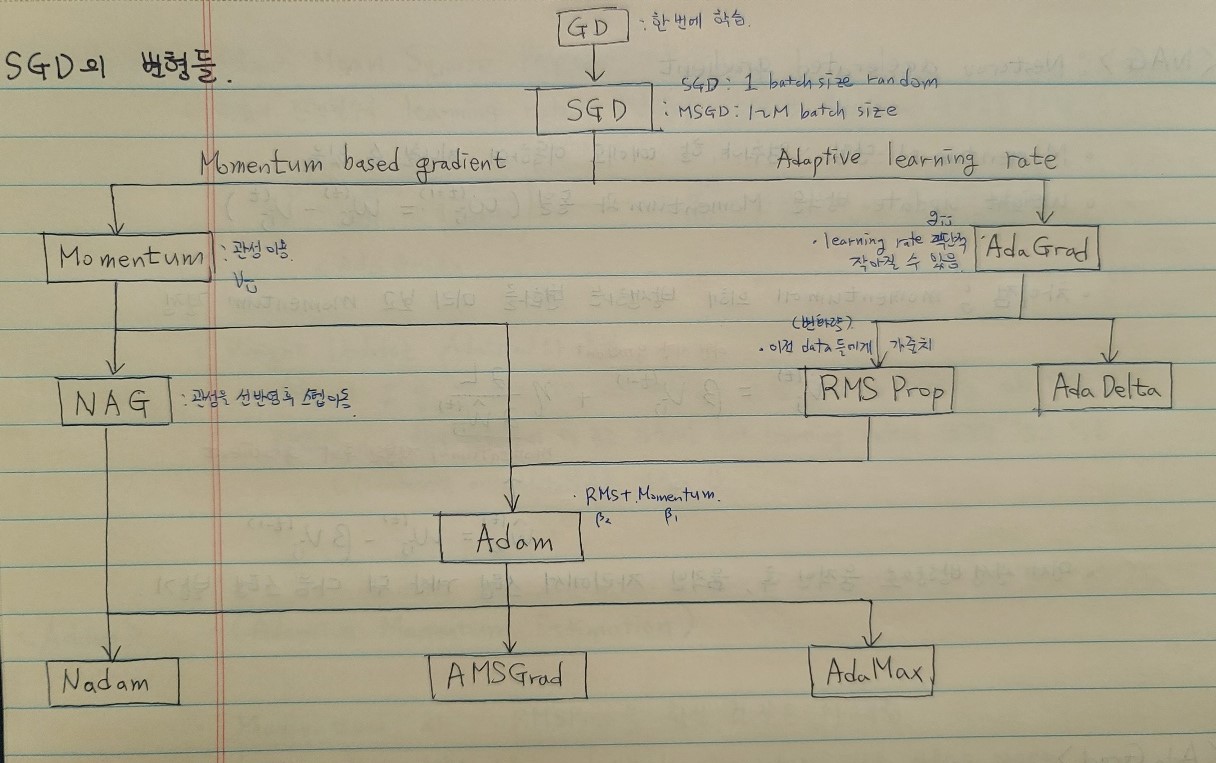 SGD의 변형들.
GD
: 한번에 학습.
SGD
SGD: 1 batch size random
: MSGD: 1~M batch size
Momentum based gradient
Adaptive learning rate
Momentum
: 관성 이용.
AdaGrad
작아질 수 있음.
· learning rate
NAG
: 관성을 선반영 후 스텝 이동.
(변화량)
· 이전 data들에게 가중치
RMS Prop
AdaDelta
· RMS + Momentum.
β₂ β₁
Adam
Nadam
AMSGrad
AdaMax